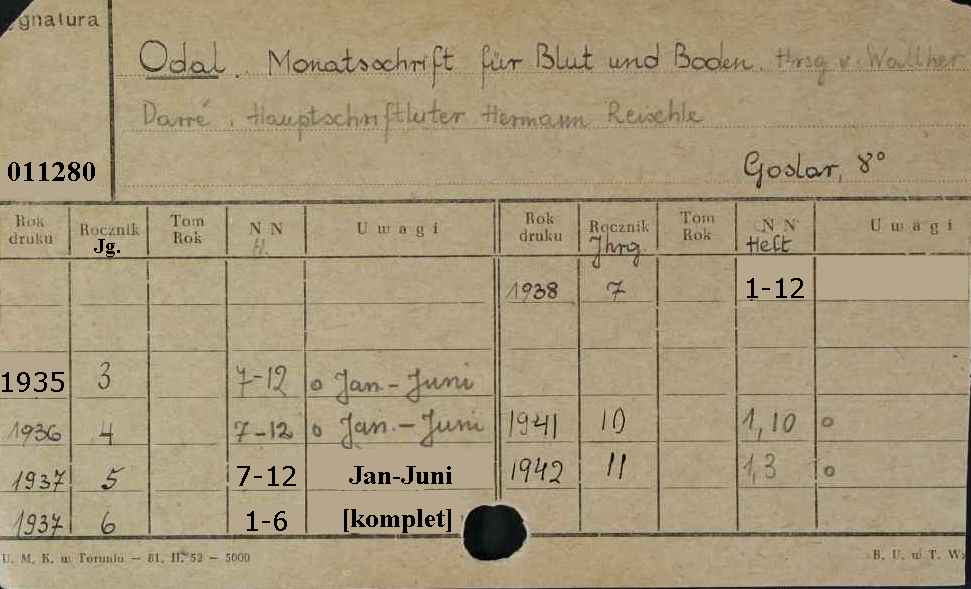 ygnatura
Odal. Monatsschrift für Blut und Boden. Hrsg v. Walther
Darré. Hauptschriftluter Hermann Reischle
011280
Goslar, 8°
Rok druku Rocznik Jg. Tom Rok N N H. Uwagi Rok druku Rocznik Jhrg. Tom Rok N N Heft Uwagi
1938 7 1-12
1935 3 7-12 o Jan-Juni
1936 4 7-12 o Jan.-Juni 1941 10 1,10 o
1937 5 7-12 Jan-Juni 1942 11 1,3 o
1937 6 1-6 [komplet]
U. M. K. w Toruniu — 81. II. 52 — 5000 B. U. w T. W